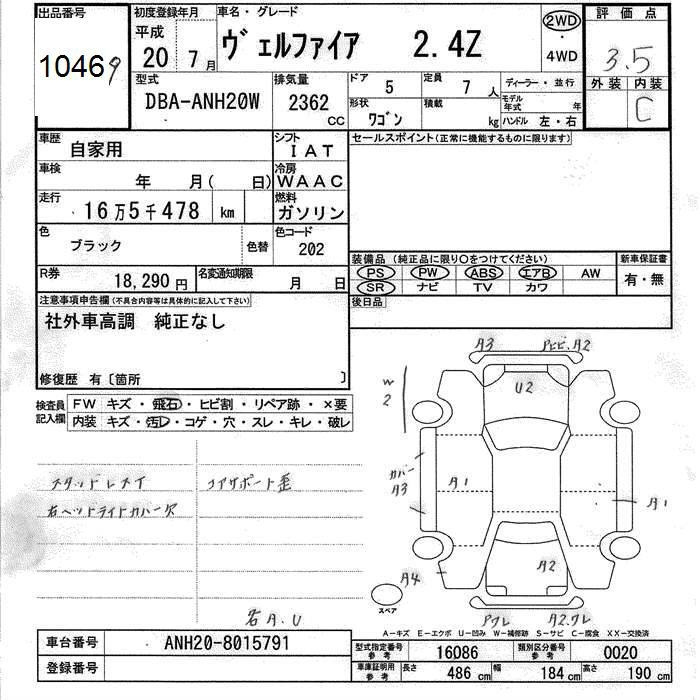 出品番号
10469
初度登録年月
平成
20 7月
車名・グレード
ヴェルファイア 2.4Z
2WD
・
4WD
評価点
3.5
外装 内装
C
型式
DBA-ANH20W
排気量
2362 CC
ドア 5
定員 7 人
ディーラー・並行
形状 ワゴン
積載 kg
モデル年式 年
ハンドル 左・右
車歴 自家用
シフト IAT
セールスポイント(正常に機能するものに限ります)
車検 年 月( 日)
冷房 WAAC
走行 16万5千478 km
燃料 ガソリン
色 ブラック 色替
色コード 202
装備品(純正品に限り○をつけてください)
新車保証書
PS PW ABS エアB AW
SR ナビ TV カワ
有・無
R券 18,290円
名変通知期限 月 日
後日品
注意事項申告欄(不具合内容等は具体的に記入して下さい)
社外車高調 純正なし
修復歴 有〔箇所 〕
検査員記入欄
FW キズ・飛石・ヒビ割・リペア跡・×要
内装 キズ・汚レ・コゲ・穴・スレ・キレ・破レ
スタッドレスイ
コアサポート歪
右ヘッドライトカバー欠
名A.U
A3
Pヒビ.A2
U2
W2
カバー
A3
A1
A1
A4
A2
スペア
Pワレ
A2.ワレ
A-キズ E-エクボ U-凹み W-補修跡 S-サビ C-腐食 XX-交換済
車台番号 ANH20-8015791
登録番号
型式指定番号 参考 16086
類別区分番号 参考 0020
車庫証明用 参考
長さ 486 cm
幅 184 cm
高さ 190 cm